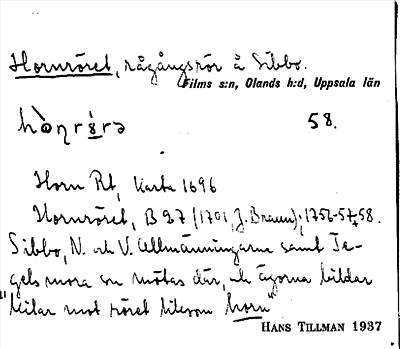 Hornröret, rågångsrör å Sibbo.
Films s:n, Olands h:d, Uppsala län
58.
Horn Rt, karta 1696
Hornröret, B 27 (1701, J. Braun); 1756-57, 58.
Sibbo, N. och V. Allmänningarne samt Te-
gelsmora sn mötas där, och ägorna bildar
"kilar mot röret liksom horn"
HANS TILLMAN 1937